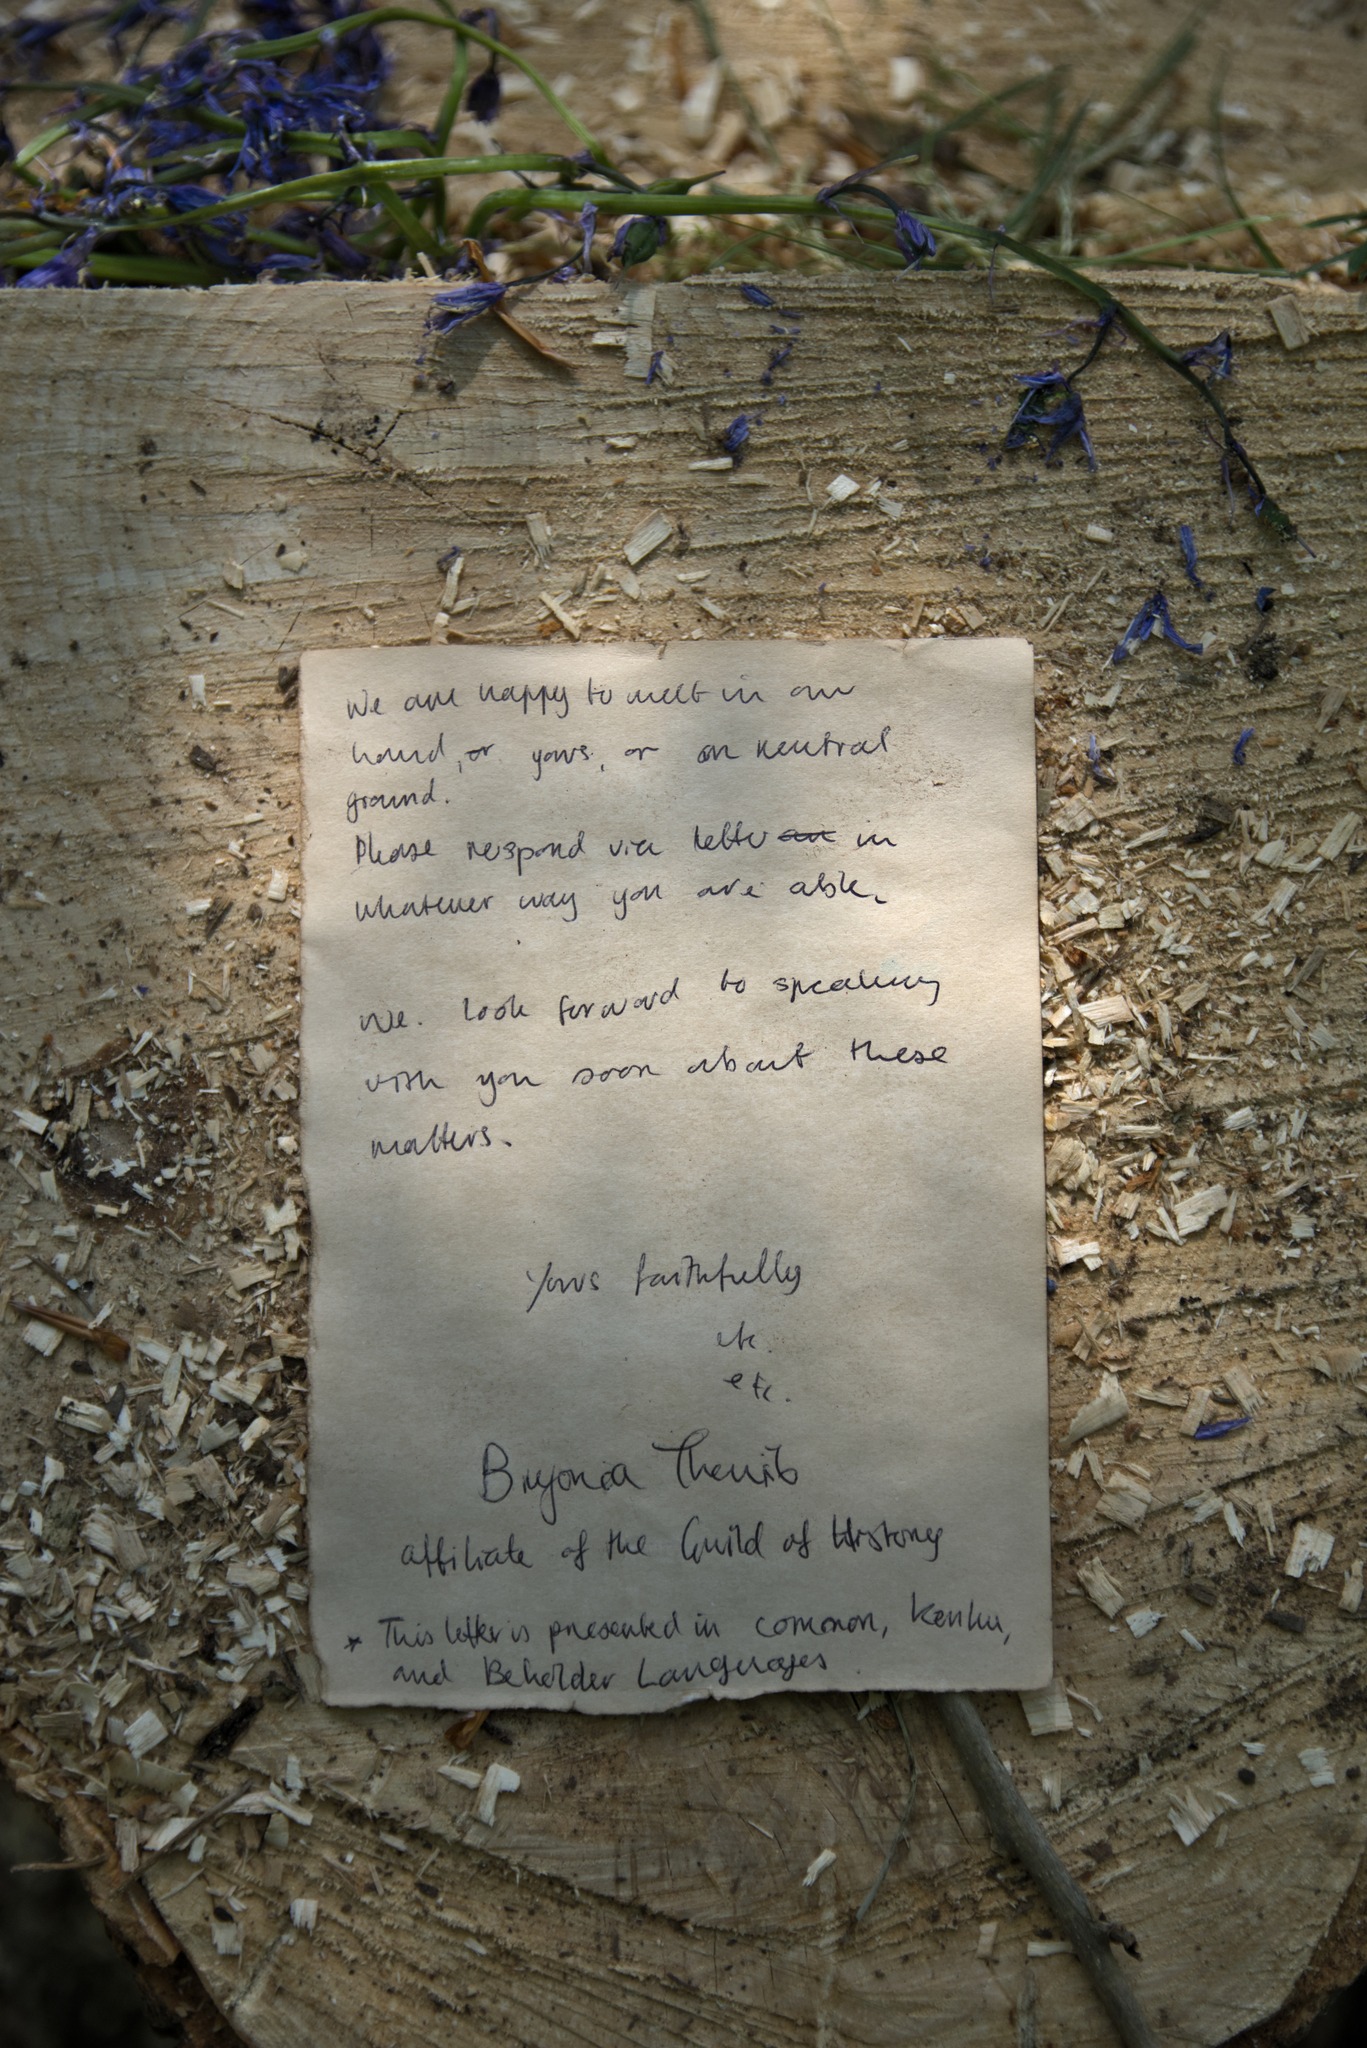 We are happy to meet in our
hand, or yours, or on neutral
ground.
Please respond via letter in
whatever way you are able.
We look forward to speaking
with you soon about these
matters.
Yours faithfully
etc.
etc.
Bryonia
affiliate of the Guild of History
* This letter is presented in common, Kenku,
and Beholder Languages.